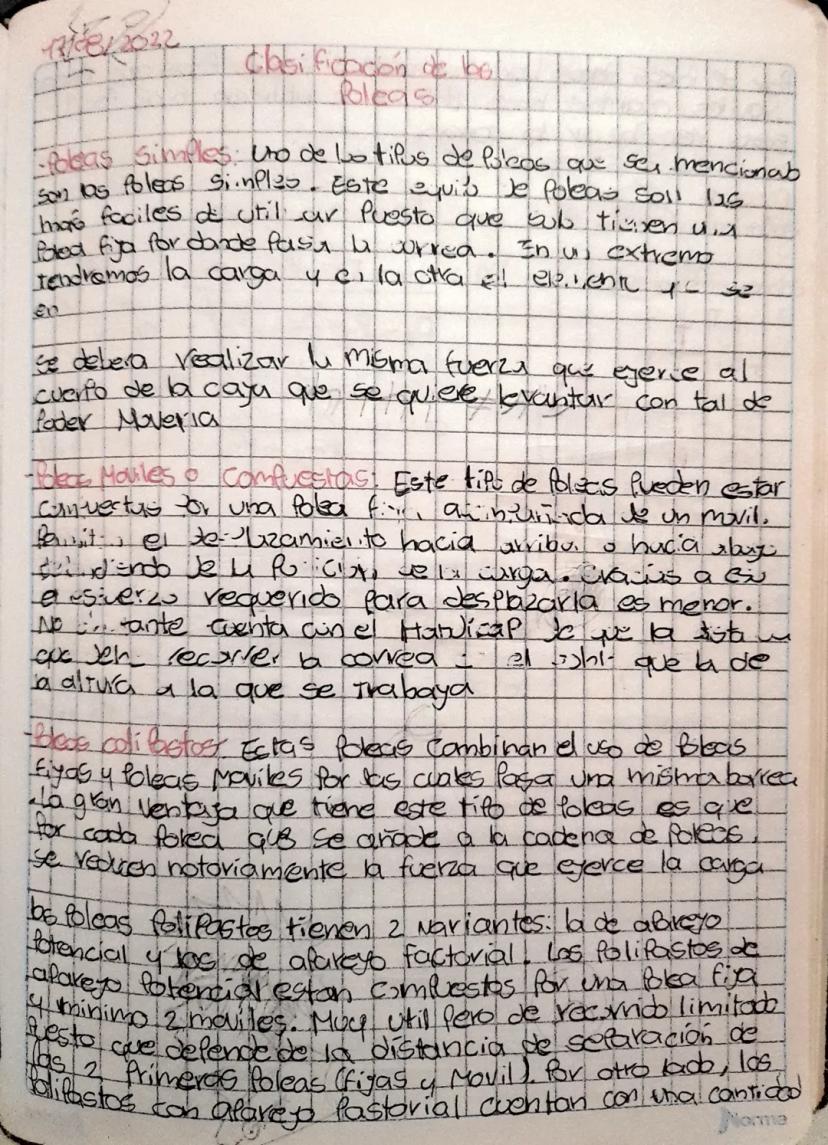 17/08/2022
Clasificación de las
Poleas
-Poleas simples: Uno de los tipos de Poleas que se mencionab
son las Poleas simples. Este de Poleas son las
más faciles de utilizar Puesto que solo tienen una
Polea fija Por donde Pasa la correa. En un extremo
tendremos la carga y en la otra el se
en
se debera realizar la misma fuerza que ejerce al
cuerpo de la caja que se quiere levantar con tal de
Poder Moverla
-Poleas Moviles o compuestas: Este tipo de Poleas Pueden estar
por una Polea de un movil.
el desplazamiento hacia arriba o hacia abajo
de la Posición de la carga. Gracias a
el esfuerzo requerido Para desplazarla es menor.
No obstante cuenta con el Handicap de que la
que recorrer la correa el que la de
la altura a la que se trabaja
-Poleas Estas Poleas combinan el uso de Poleas
fijas y Poleas Moviles Por las cuales Pasa una misma
La gran ventaja que tiene este tipo de Poleas es que
Por cada Polea que se añade a la cadena de Poleas,
se reducen notoriamente la fuerza que ejerce la carga
las Poleas Polipastos tienen 2 variantes: la de aparejo
Potencial y los de aparejo factorial. Los Polipastos de
aparejo Potencial estan compuestos Por una Polea fija
y minimo 2 moviles. Muy util Pero de recorrido limitado
Puesto que depende de la distancia de separación de
las 2 Primeras Poleas (fijas y Movil). Por otro lado, los
Polipastos con aparejo Pastorial cuentan con una cantidad
Norma